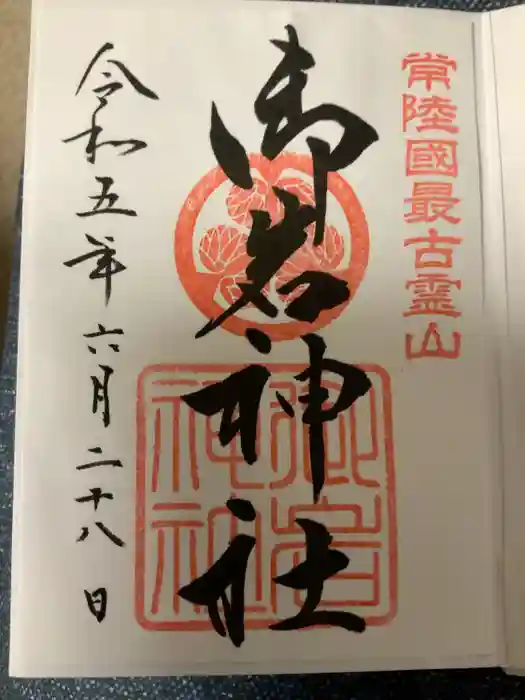 常陸國最古霊山
御岩神社
御岩神社
令和五年六月二十八日